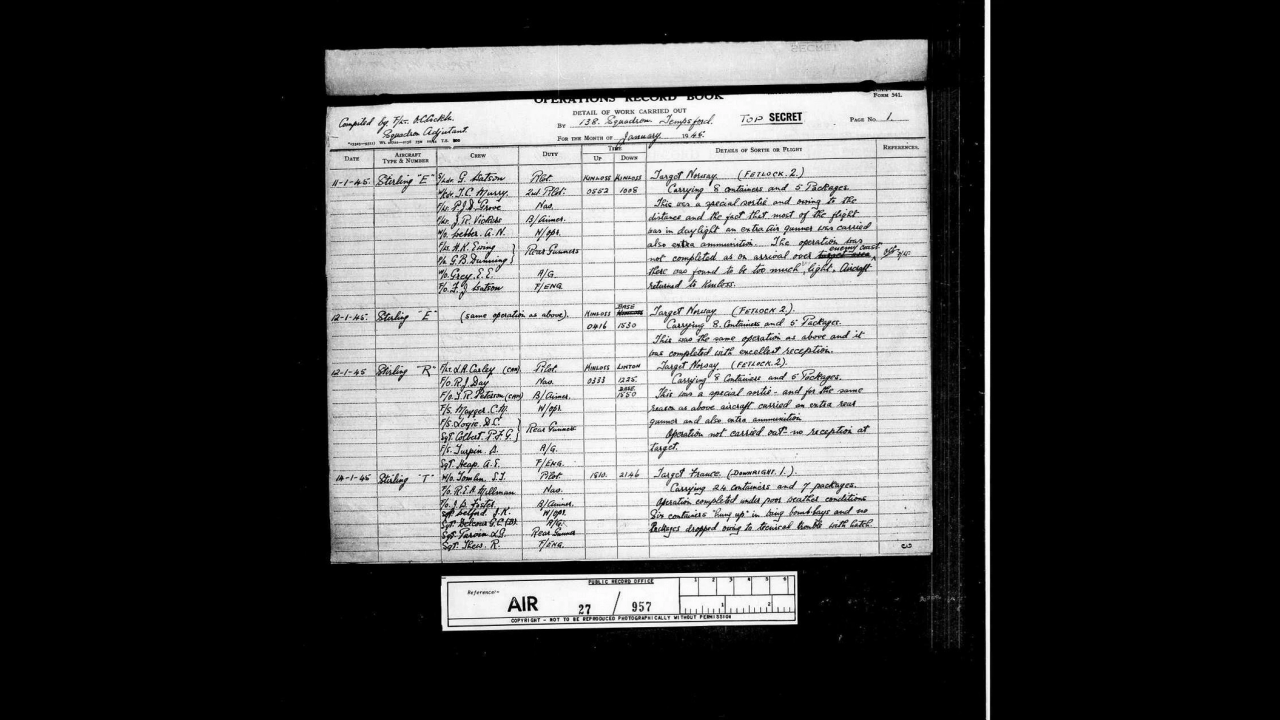 SECRET
OPERATIONS RECORD BOOK
FORM 541.
DETAIL OF WORK CARRIED OUT
Compiled by
Squadron Adjutant.
BY 138. Squadron Tempsford.
TOP SECRET
PAGE No. 1.
FOR THE MONTH OF January 1945.
DATE AIRCRAFT TYPE & NUMBER CREW DUTY TIME UP DOWN DETAILS OF SORTIE OR FLIGHT REFERENCES.
11-1-45. Stirling "E" G. Watson Pilot. KINLOSS KINLOSS Target Norway. (FETLOCK. 2.)
T.C. Murry. 2nd Pilot. 0552 1008 Carrying 8 containers and 5 Packages.
P.J.D. Grove Nav. This was a special sortie and owing to the
J.R. Vickers B/Aimer. distance and the fact that most of the flight
A.N. W/opr. was in daylight an extra Air gunner was carried
H.K. Ewing } Rear Gunners also extra ammunition. The operation was
G.B. Dunning } not completed as on arrival over target area enemy coast
Grey. E.E. A/G. there was found to be too much light. Aircraft
F.J. Watson F/ENG. returned to Kinloss.
12-1-45. Stirling "E" (same operation as above). KINLOSS BASE Target Norway. (FETLOCK 2.).
0416 1530 Carrying 8 Containers and 5 Packages.
This was the same operation as above and it
was completed with excellent reception.
12-1-45 Stirling "R" L.H. Corley (CAN) Pilot. KINLOSS LINTON Target Norway. (FETLOCK. 2).
F/O. R.J. Day Nav. 0333 1225. Carrying 8 Containers and 5 Packages.
F/O. J.R. Peterson (CAN) B/Aimer. BASE 1550 This was a special sortie - and for the same
F/S. C.M. W/opr. reason as above aircraft carried an extra rear
F/S. Logie. D.C. } Rear Gunners gunner and also extra ammunition
Sgt. Colbert. } Operation not carried out - no reception at
F/S. Turpin A/G. target.
Sgt. Heap. A.S. F/ENG.
14-1-45 Stirling "T" W/O. Tomlin. S.J. Pilot. 1810. 2146 Target France. (DOWNRIGHT. 1.).
F/O. R.E.A. Millman Nav. Carrying 24 containers and 7 packages.
F/O. J.B. Foster B/Aimer. Operation completed under poor weather conditions
Sgt. J.K. W/opr. Six containers "hung up" in wing bomb bays and no
Sgt. G.C. A/G. Packages dropped owing to tecnical trouble with hatch.
Sgt. Rear Gunner
Sgt. R. F/ENG.
PUBLIC RECORD OFFICE
Reference:-
AIR 27 / 957
1 2 3 4 5 6
1 2
COPYRIGHT - NOT TO BE REPRODUCED PHOTOGRAPHICALLY WITHOUT PERMISSION